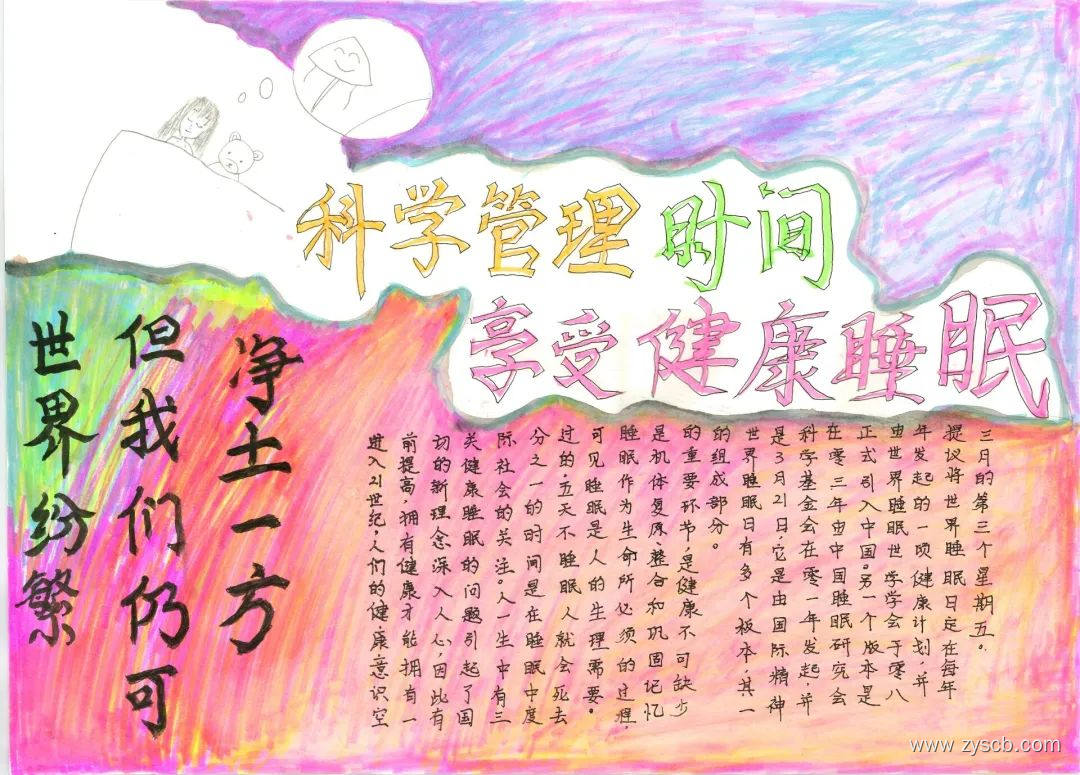 科学管理时间
享受健康睡眠
世界纷繁
但我们仍可
净土一方
进入21世纪,人们的健康意识空
前提高,拥有健康才能拥有一
切的新理念深入人心,因此有
关健康睡眠的问题引起了国
际社会的关注。人一生中有三
分之一的时间是在睡眠中度
过的,五天不睡眠人就会死去
可见睡眠是人的生理需要。
睡眠作为生命所必须的过程,
是机体复原、整合和巩固记忆
的重要环节,是健康不可缺步
的组成部分。
世界睡眠日有多个板本,其一
是3月21日,它是由国际精神
科学基金会在零一年发起,并
在零三年由中国睡眠研究会
正式引入中国。另一个版本是
由世界睡眠世学学会于零八
年发起的一项健康计划,并
提议将世界睡眠日定在每年
三月的第三个星期五。
www.zyscb.com